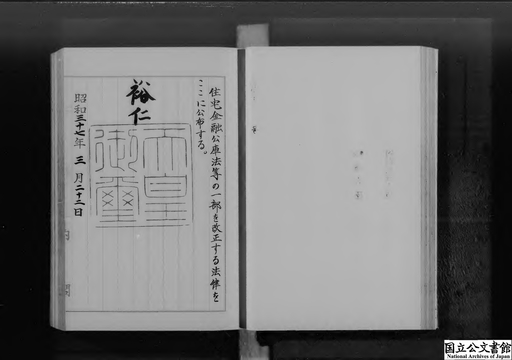 住宅金融公庫法等の一部を改正する法律を
ここに公布する。
裕仁
天皇
御璽
昭和三十七年三月二十二日
国立公文書館
National Archives of Japan